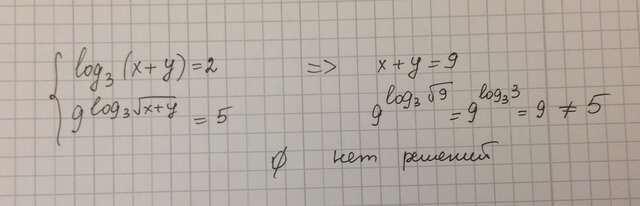 log₃(x+y)=2 => x+y=9
9^(log₃√(x+y)) = 5 9^(log₃√9) = 9^(log₃3) = 9 ≠ 5
∅ нет решений